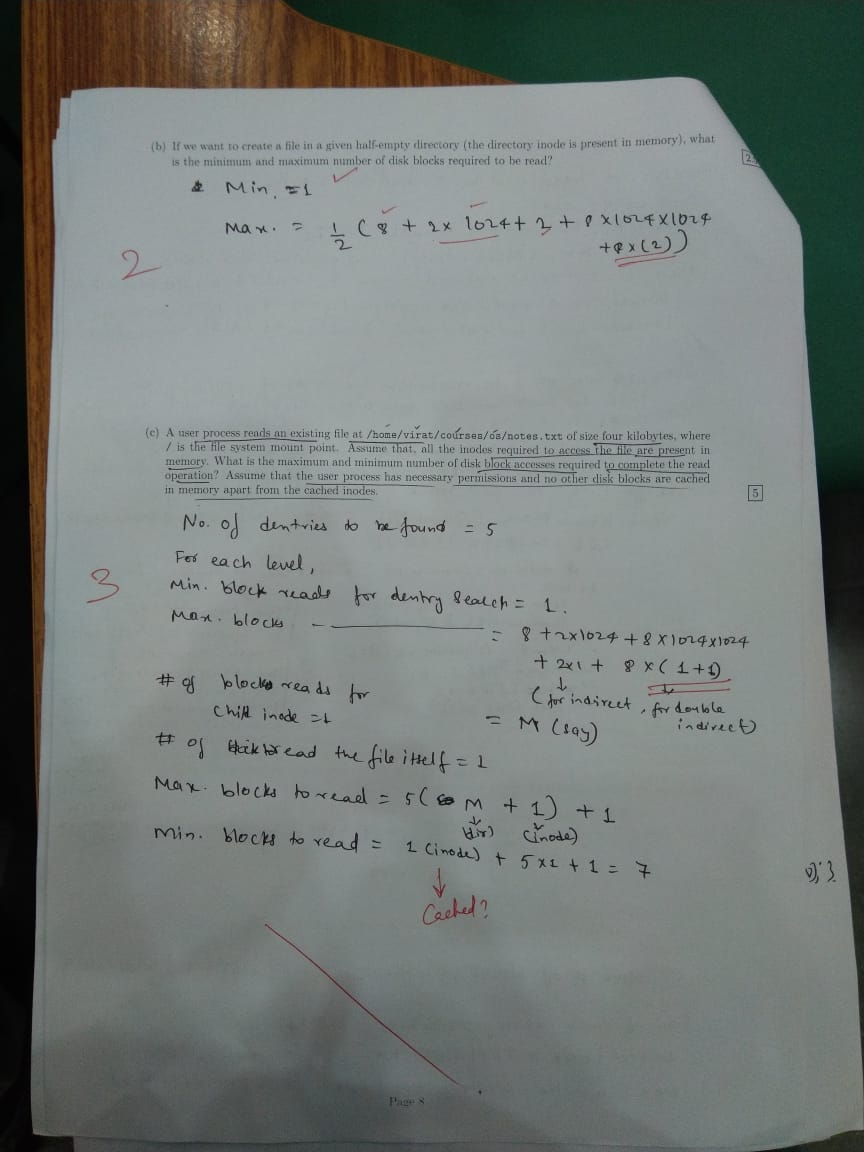 (b) If we want to create a file in a given half-empty directory (the directory inode is present in memory), what
is the minimum and maximum number of disk blocks required to be read?
Min. = 1
Max. = 1/2 ( 8 + 2 x 1024 + 2 + 8 x 1024 x 1024
+ 8 x (2) )
2
(c) A user process reads an existing file at /home/virat/courses/os/notes.txt of size four kilobytes, where
/ is the file system mount point. Assume that, all the inodes required to access the file are present in
memory. What is the maximum and minimum number of disk block accesses required to complete the read
operation? Assume that the user process has necessary permissions and no other disk blocks are cached
in memory apart from the cached inodes.
5
No. of dentries to be found = 5
For each level,
3
Min. block reads for dentry search = 1.
Max. blocks — = 8 + 2x1024 + 8 x 1024 x 1024
+ 2x1 + 8 x ( 1+1)
# of blocks reads for
(for indirect, for double
indirect)
child inode = 1
= M (say)
# of read the file itself = 1
Max. blocks to read = 5( M + 1) + 1
(dir) (inode)
Min. blocks to read = 1 (inode) + 5 x 1 + 1 = 7
Cached?
Page 8